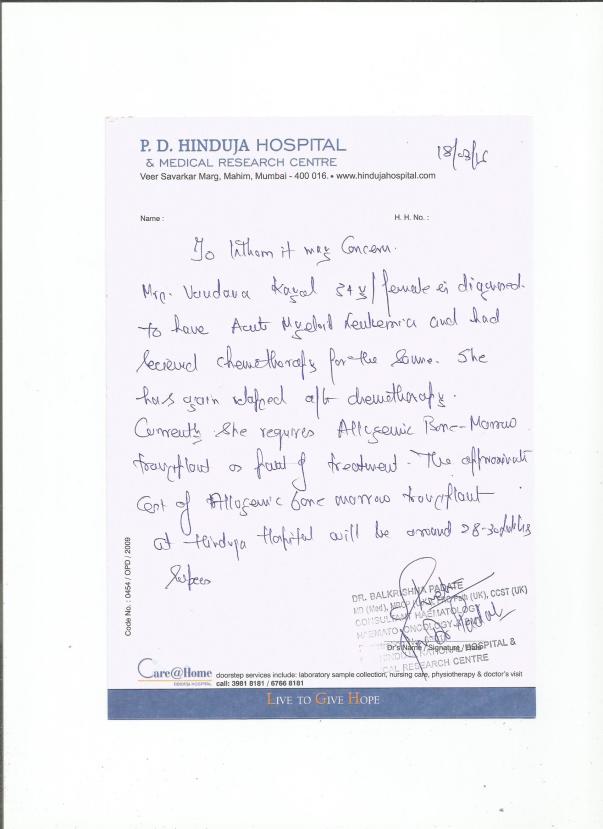 P. D. HINDUJA HOSPITAL
& MEDICAL RESEARCH CENTRE
Veer Savarkar Marg, Mahim, Mumbai - 400 016. • www.hindujahospital.com
18/03/16
Name :
H. H. No. :
To Whom it may Concern.
Mrs. Vandana Kayal 34 y/female is diagnosed
to have Acute Myeloid Leukemia and had
recieved chemotherapy for the same. She
has again relapsed after chemotherapy.
Currently she requires Allogenic Bone-Marrow
transplant as part of treatment. The approximate
Cost of Allogenic bone marrow transplant
at Hinduja Hospital will be around 28-30 lakhs
Rupees
Code No. : 0454 / OPD / 2009
DR. BALKRISHNA PADATE
MD (Med), (UK), CCST (UK)
CONSULTANT HAEMATOLOGY
HAEMATO ONCOLOGY
Dr's Name / Signature / Date
HOSPITAL &
MEDICAL RESEARCH CENTRE
Care@Home doorstep services include: laboratory sample collection, nursing care, physiotherapy & doctor's visit
HINDUJA HOSPITAL call: 3981 8181 / 6766 8181
LIVE TO GIVE HOPE